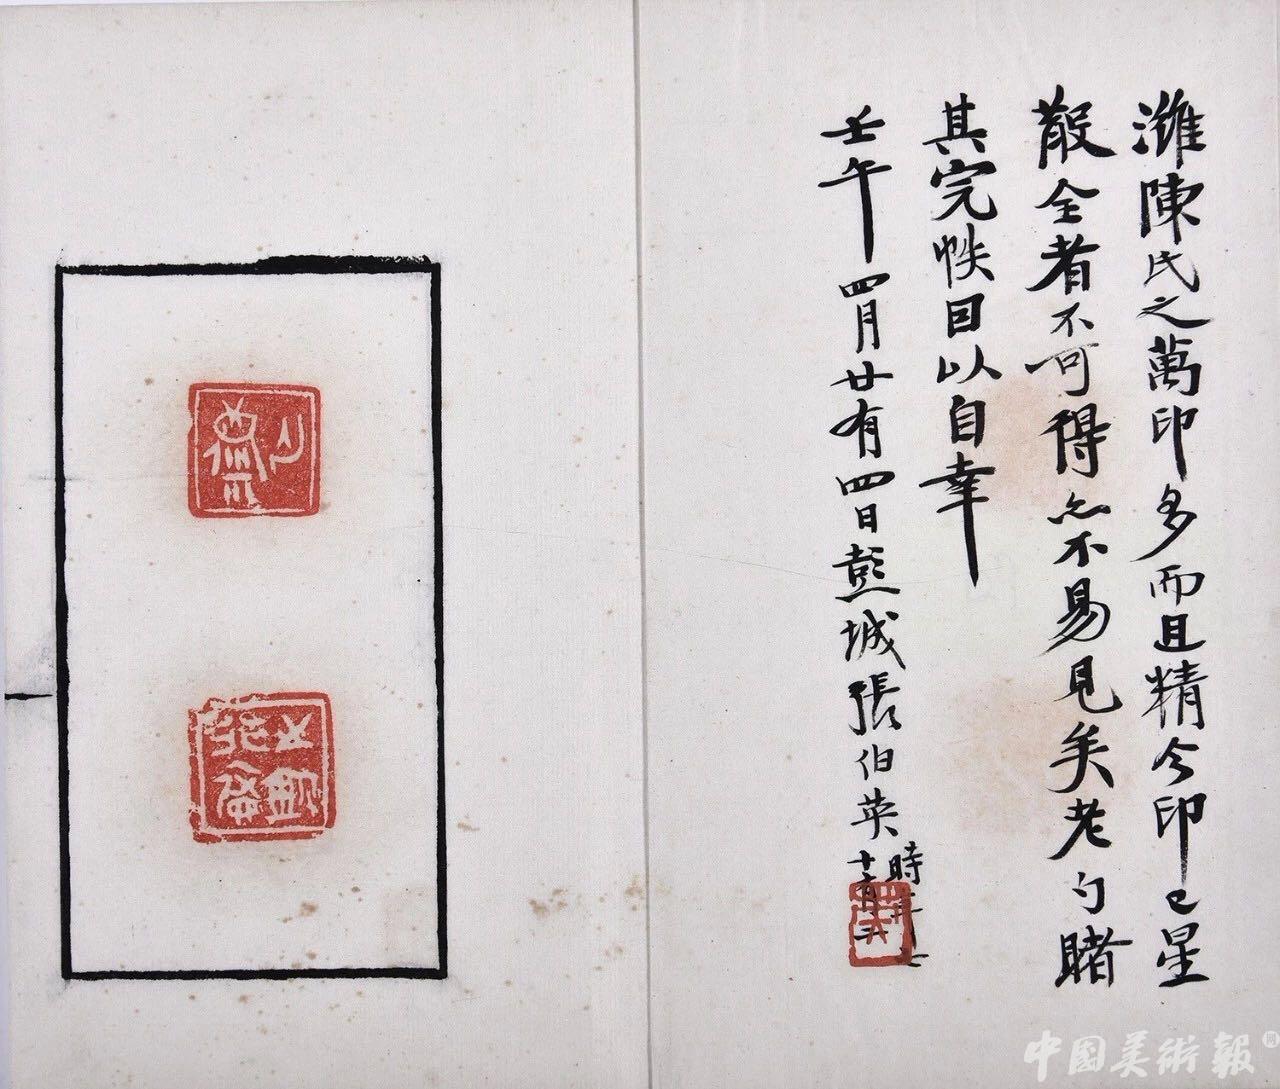 濰陳氏之萬印多而且精今印已星
散全者不可得亦不易見矣老勺睹
其完帙因以自幸
壬午四月廿有四日彭城張伯英
時年七
十有二
中國美術報